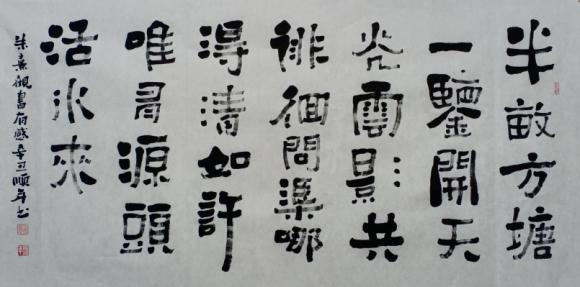 半畝方塘
一鑒開天
光雲影共
徘徊問渠哪
得清如許
唯有源頭
活水來
朱熹觀書有感辛丑順